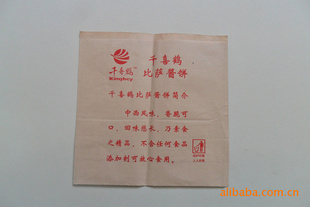 千喜鹤
千喜鹤™
Kinghey
比萨酱饼
千喜鹤比萨酱饼简介
中西风味，香脆可
口，回味悠长，乃素食
之精品，不含任何食品
添加剂可放心食用。
alibaba.com.cn